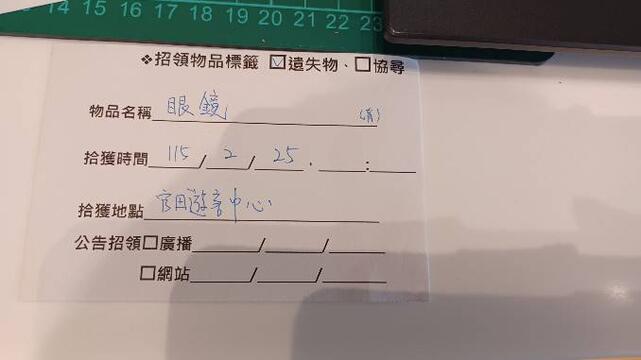 14 15 16 17 18 19 20 21 22 23
❖招領物品標籤 ☑遺失物、☐協尋
物品名稱 眼鏡
拾獲時間 115/2/25. :
拾獲地點 官田遊客中心
公告招領☐廣播 / / /
☐網站 / / /